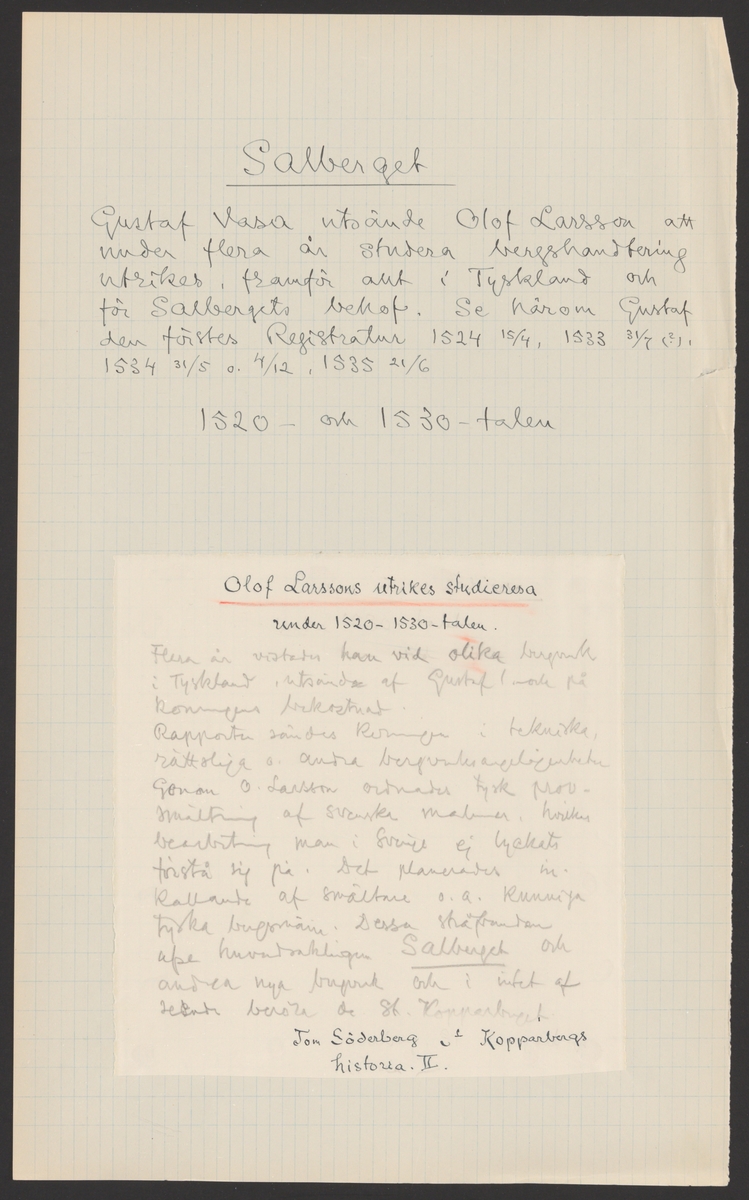 Salberget
Gustaf Vasa utsände Olof Larsson att
under flera år studera bergshandtering
utrikes, framför allt i Tyskland och
för Salbergets behof. Se härom Gustaf
den förstes Registratur 1524 15/4, 1533 31/7 (?),
1534 31/5 o. 4/12, 1535 21/6
1520- och 1530-talen
Olof Larssons utrikes studieresa
under 1520-1530-talen.
Flera år vistades han vid olika bergverk
i Tyskland, utsände af Gustaf I och på
konungens bekostnad.
Rapporter sändes konungen i tekniska,
rättsliga o. andra bergverksangelägenheter
Genom O. Larsson ordnades tysk prov-
smältning af svenska malmer, hvilkas
bearbetning man i Sverige ej lyckats
förstå sig på. Det planerades in-
kallande af smältare o. a. kunniga
tyska bergsmän. Dessa sträfvanden
huvudsakligen Salberget och
andra nya bergverk och i intet af
seende beröra de St. Kopparberget
Tom Söderberg St Kopparbergs
historia. II.